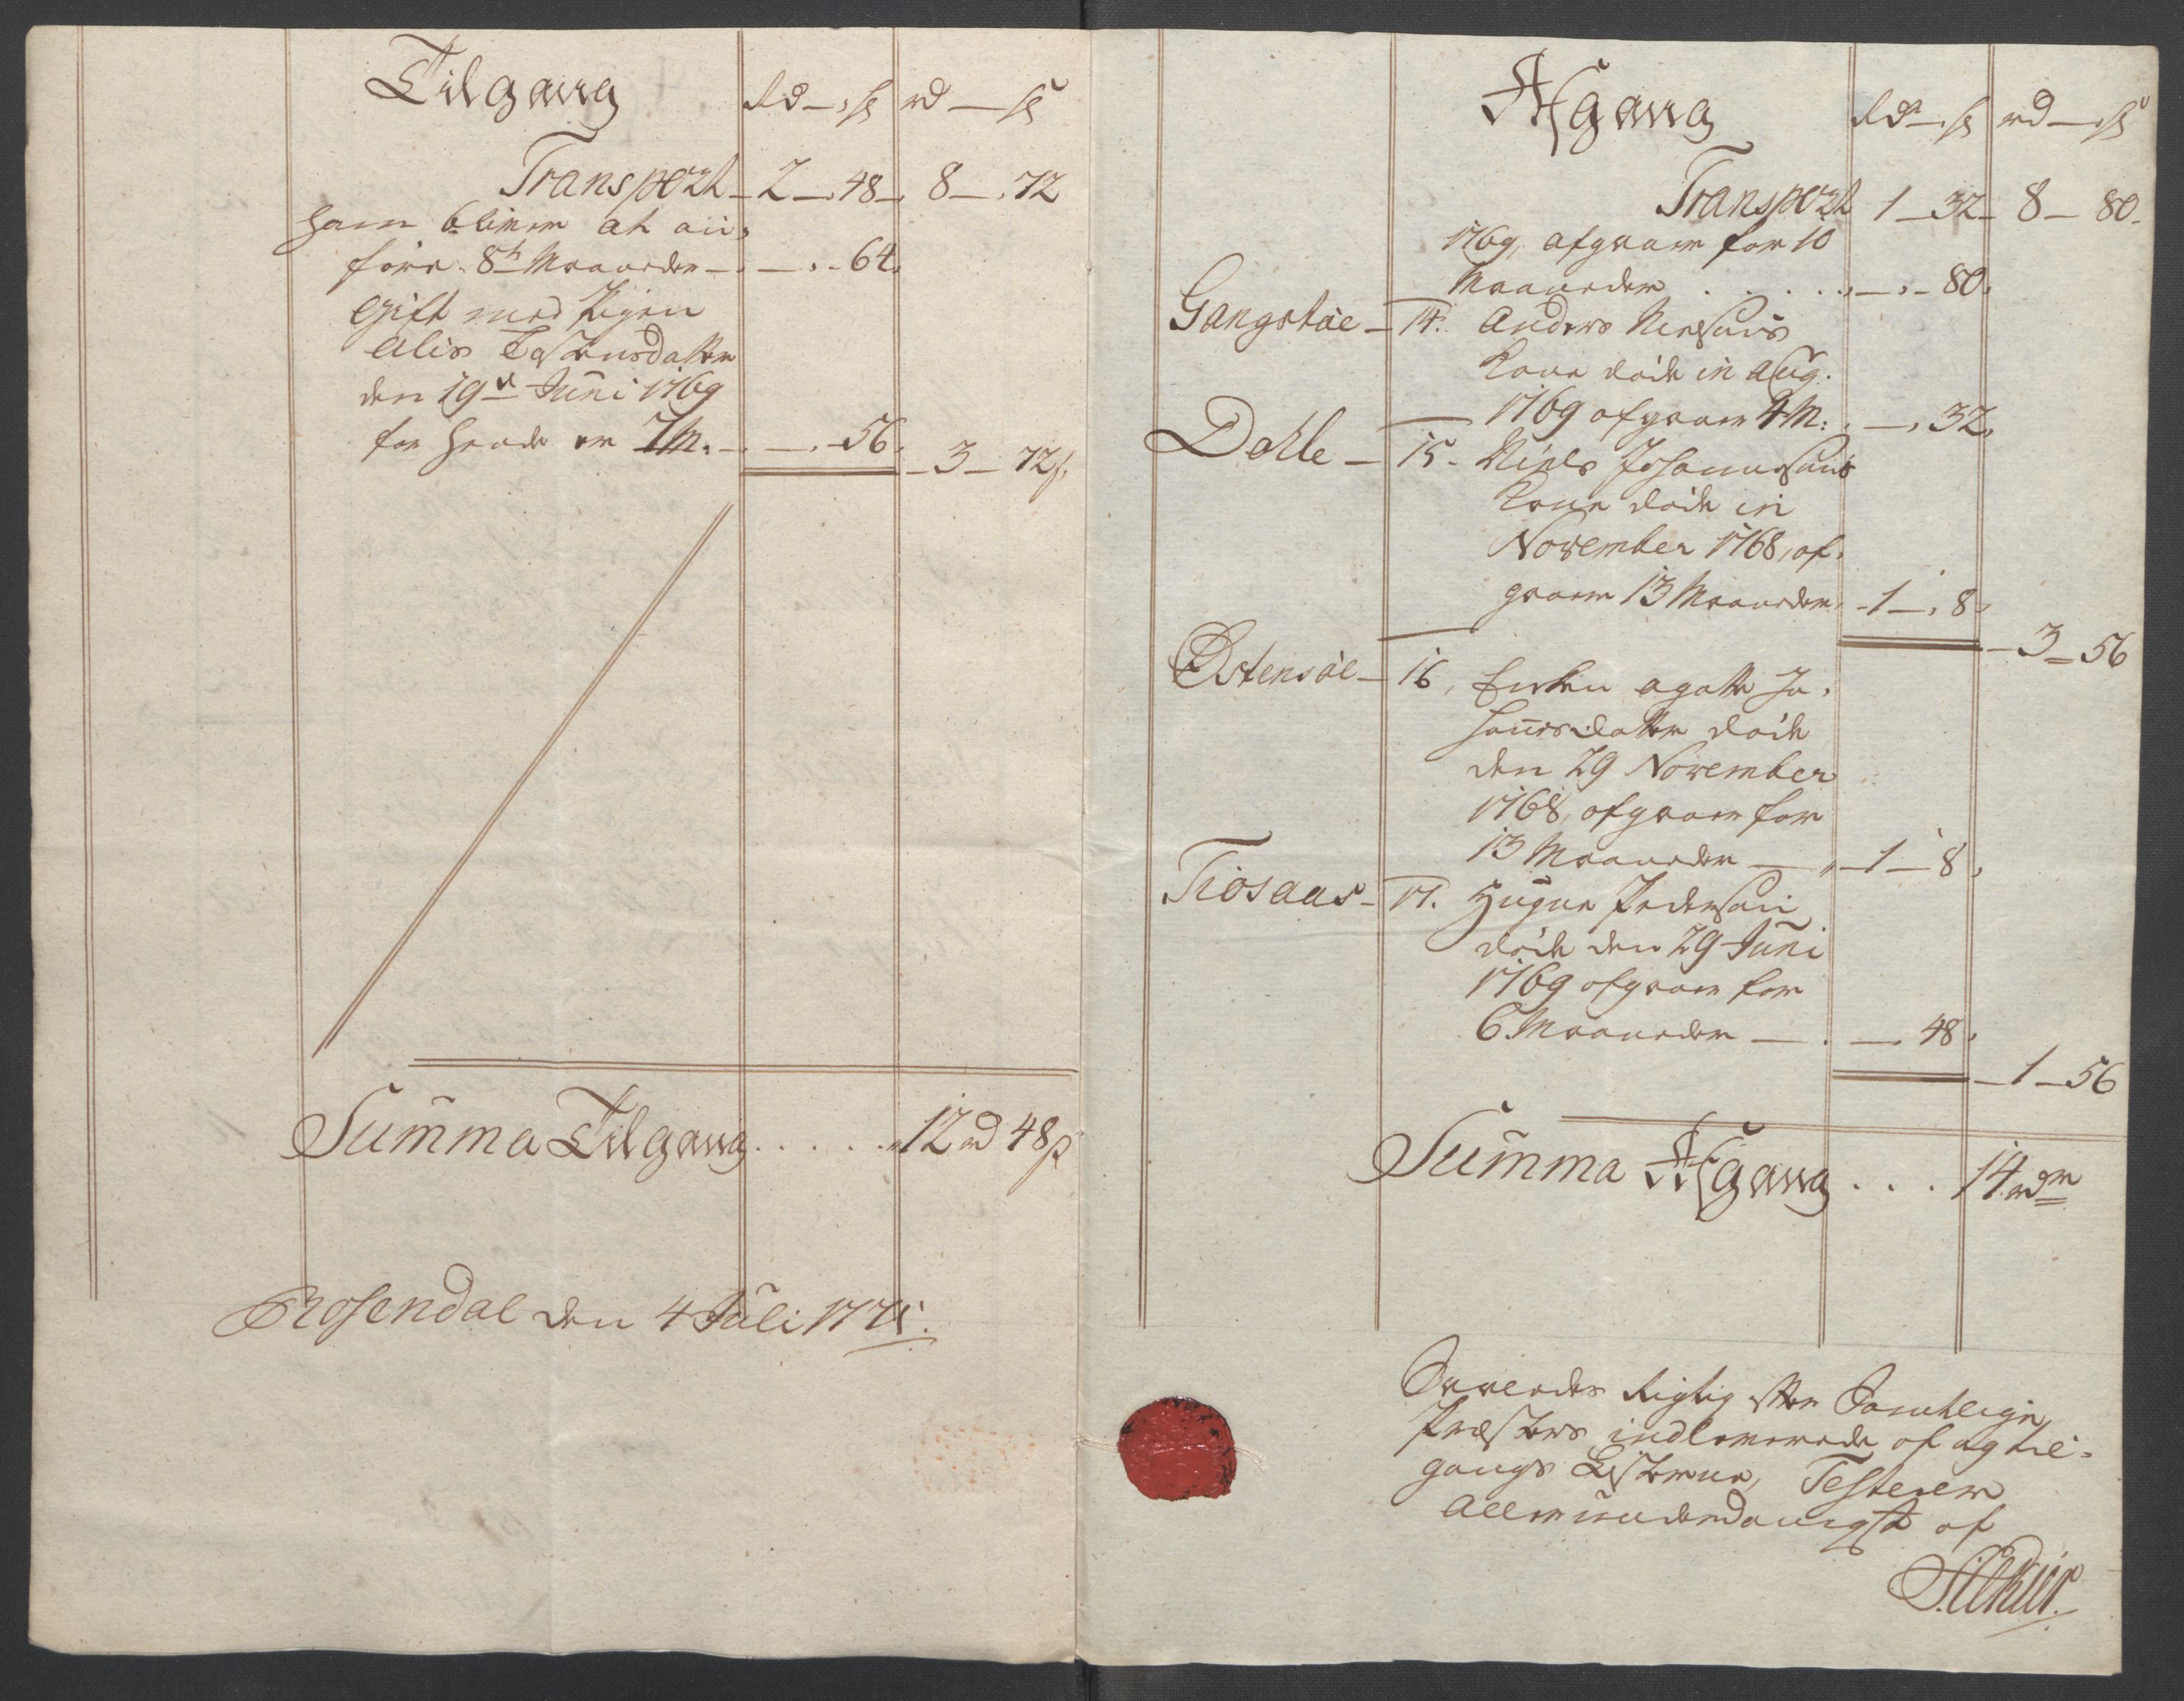 Tilgang Rd – s rd – s
Transport – 2 – 48 – 8 – 72
ham bliver at an-
føre 8te Maaneder – – 64
Gift med Pigen
den 19de Juni 1769
for hende er 7 M. – – 56
3 – 72 s
Summa Tilgang . . . . . 12 rd 48 s
Rosendal den 4 Juli 1771.
Afgang Rd – s rd – s
Transport 1 – 32 – 8 – 80
1769, afgaaer for 10
Maaneder . . . . . – – 80
Gangstøe – 14. Anders Nielsens
Kone døde in Aug.
1769 afgaaer 4 M. – 32
Dahle – 15 – Niels Johannesens
Kone døde in
November 1768, af-
gaaer 13 Maaneder – 1 – 8
3 – 56
Østensøe – 16, Enken Agatte Jo-
hannesdatter døde
den 29 November
1768, afgaaer for
13 Maaneder – 1 – 8
Tiosaas – 17. Pedersen
døde den 29 Juni
1769 afgaaer for
6 Maaneder – – 48
1 – 56
Summa Afgang . . . 14 rdr
Saaledes Rigtig efter Samtlige
Præsters indleverede af og til-
gangs Listerne, Testerer
Allerunderdanigst af